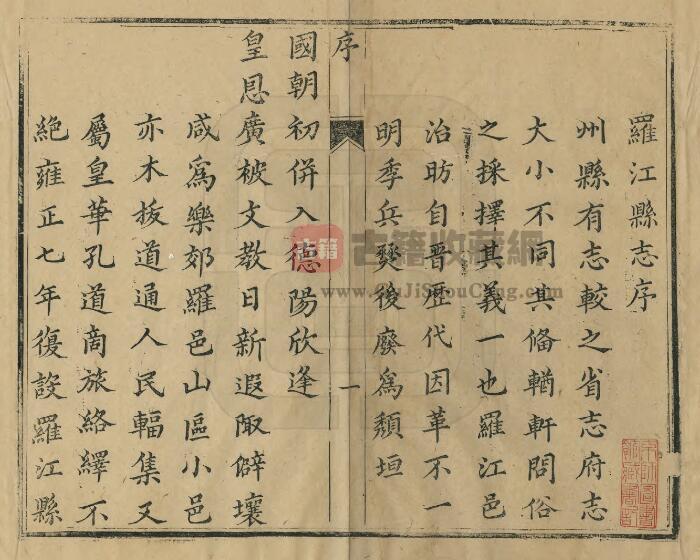 羅江縣志序
州縣有志較之省志府志
大小不同其俻輶軒問俗
之採擇其義一也羅江邑
治昉自晉歷代因革不一
明季兵燹後廢為頽垣
序
一
國朝初併入德陽欣逢
皇恩廣被文教日新遐陬僻壤
咸為樂郊羅邑山區小邑
亦木拔道通人民輻集又
屬皇華孔道商旅絡繹不
絕雍正七年復設羅江縣
古籍
古籍收藏網
www.GuJiShouCang.com